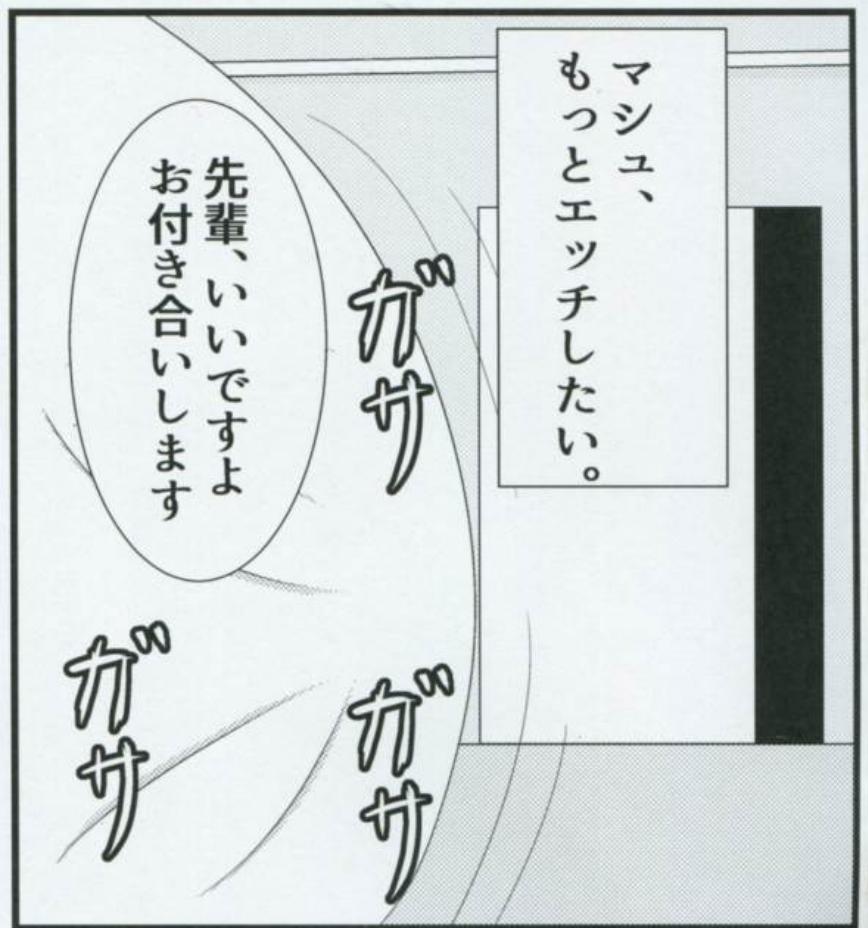 マシュ、
もっとエッチしたい。
先輩、いいですよ
お付き合いします
ガサ
ガサ
ガサ